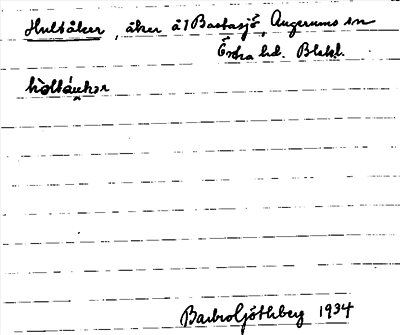 Hultåker, åker å 1 Bastasjö, Augerums sn
Östra hd. Blekl.
Barbro Göthberg 1934